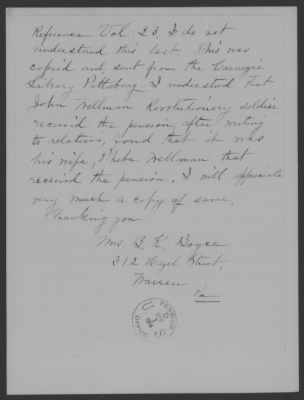 Reference Vol. 23, I do not
understand this last. This was
copied and sent from the Carnegie
Library Pittsburg. I understood that
John Wellman Revolutionery soldier
received the pension, after writing
to relatives, found that it was
his wife, Pheba Wellman that
received the pension. I will appreciate
very much a copy of same.
Thanking you
Mrs B. K. Boyce
312 Hazel Street,
Warren
Pa